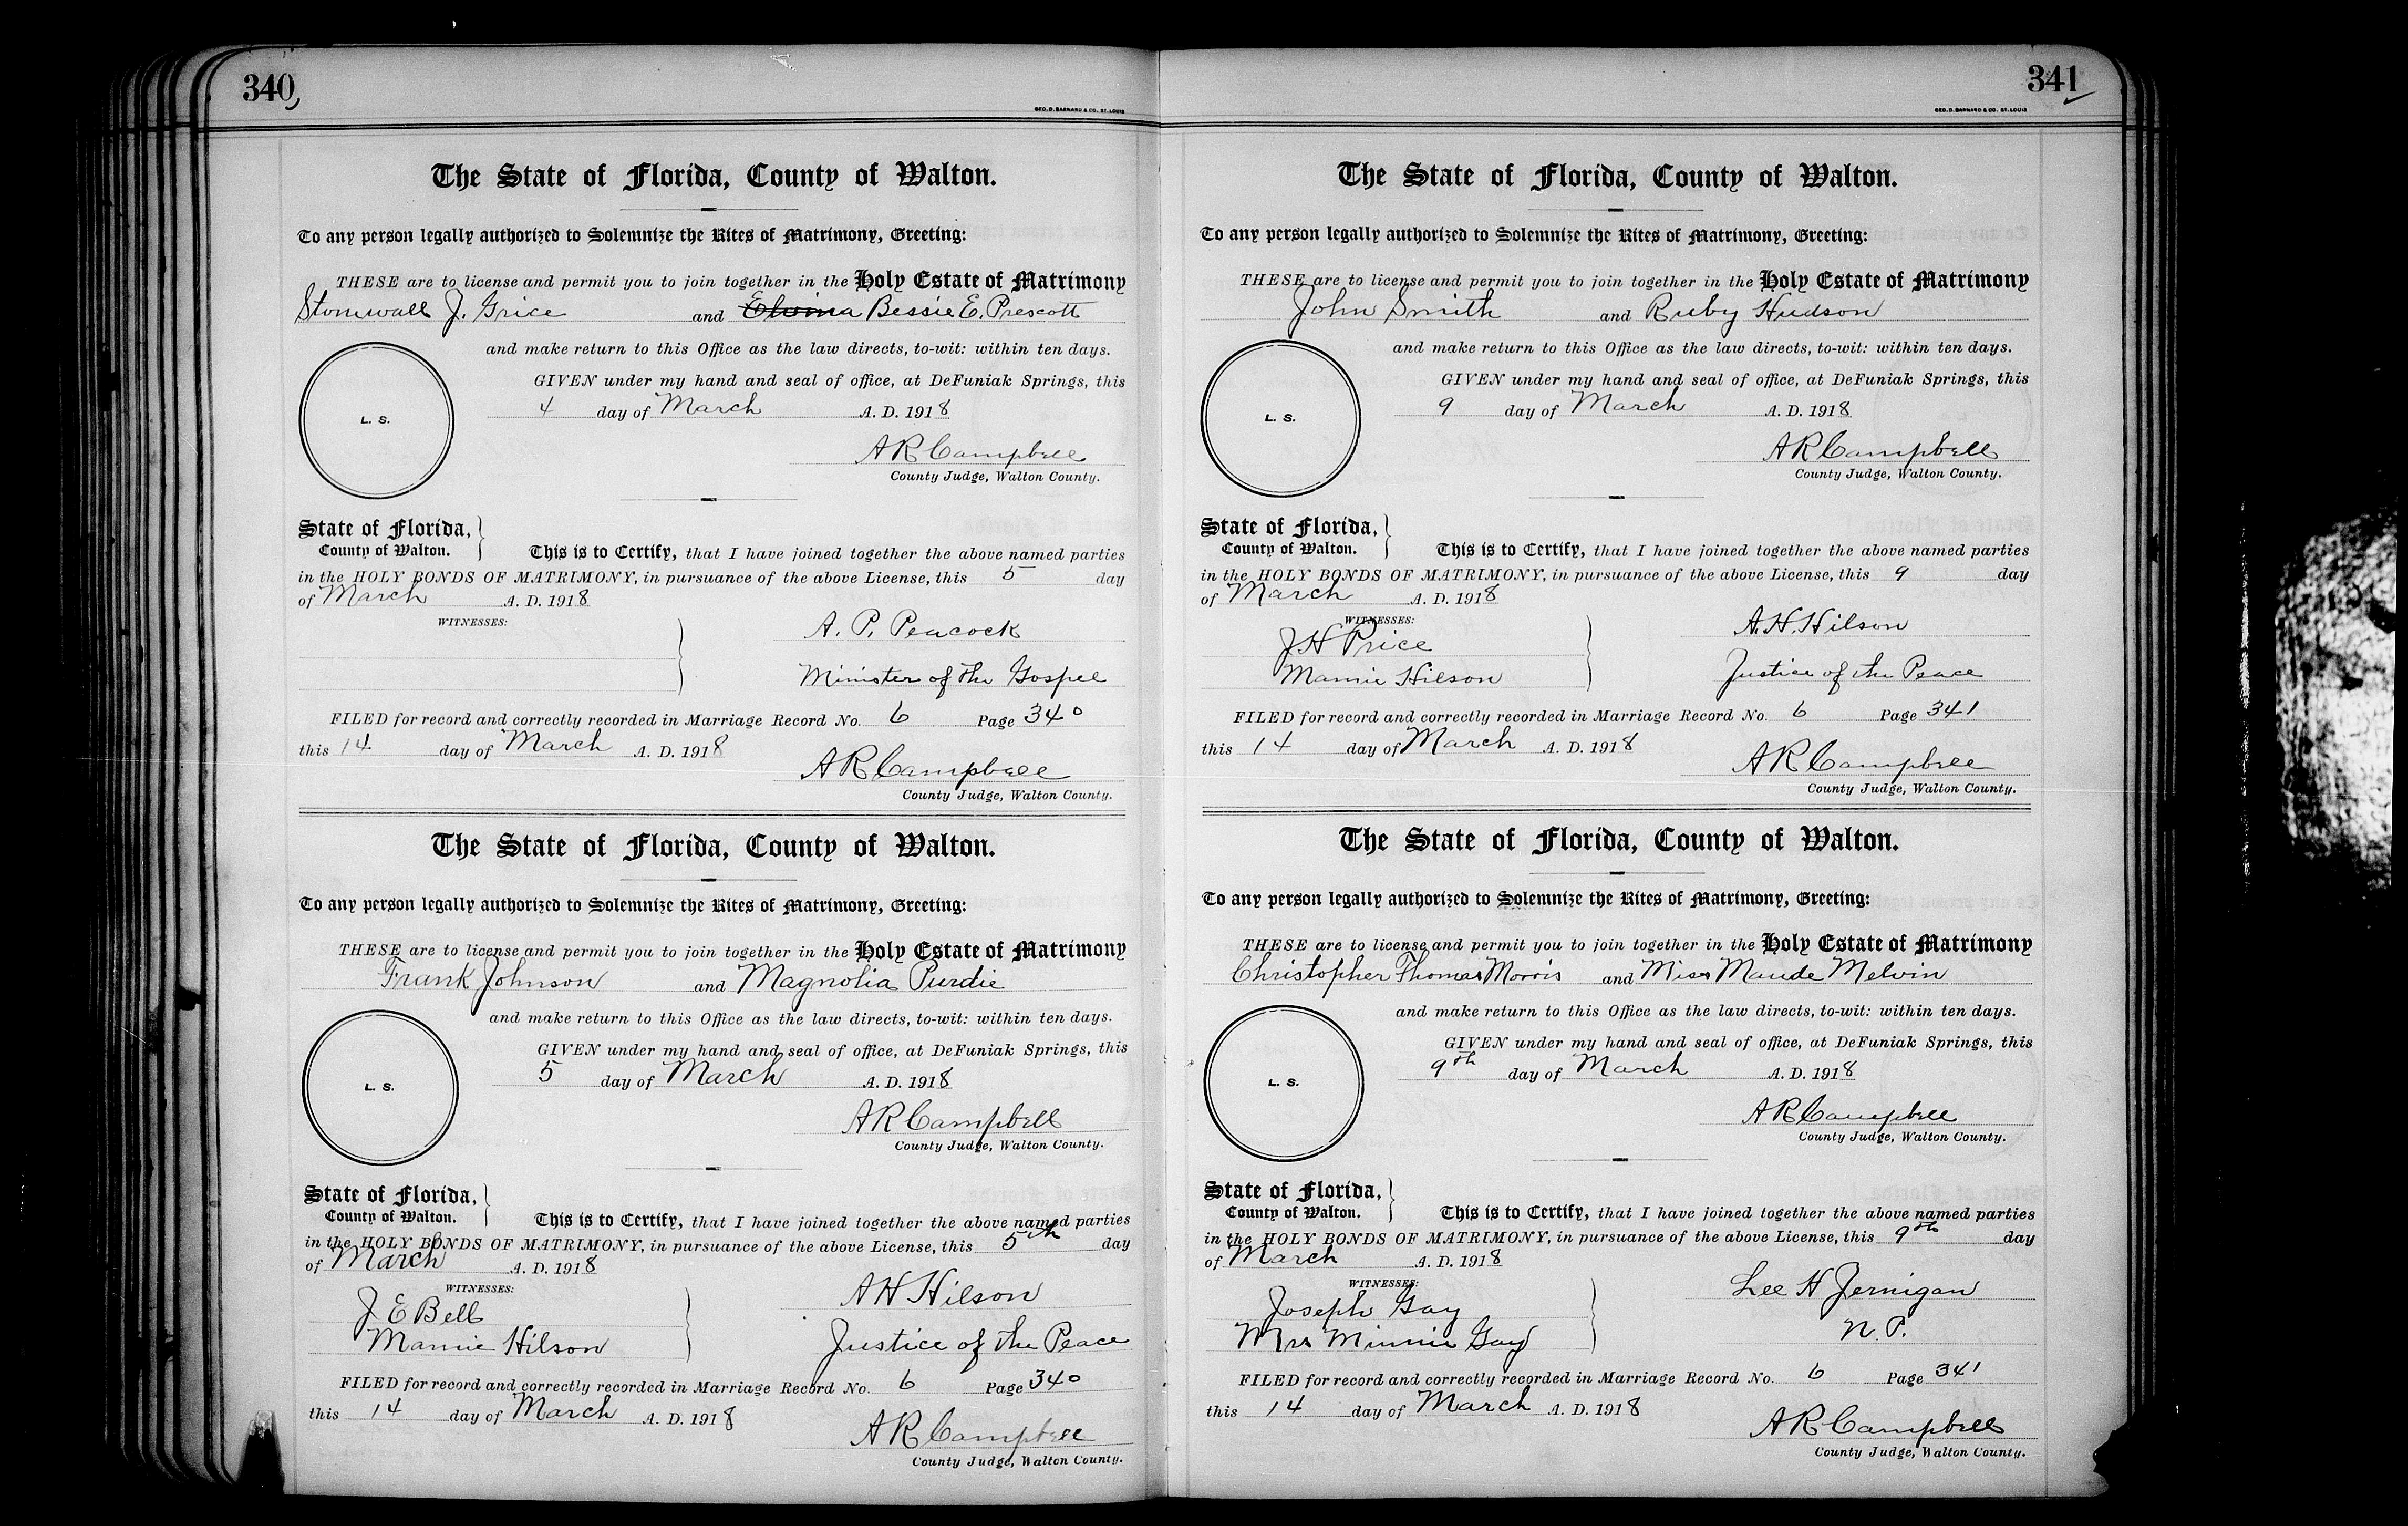 340
GEO. D. BARNARD & CO. ST. LOUIS
The State of Florida, County of Walton.
To any person legally authorized to Solemnize the Rites of Matrimony, Greeting:
THESE are to license and permit you to join together in the Holy Estate of Matrimony
Stonewall J. Grice and Bessie E. Prescott
and make return to this Office as the law directs, to-wit: within ten days.
GIVEN under my hand and seal of office, at DeFuniak Springs, this
L. S.
4 day of March A. D. 1918
A R Campbell
County Judge, Walton County.
State of Florida,
County of Walton.
This is to Certify, that I have joined together the above named parties
in the HOLY BONDS OF MATRIMONY, in pursuance of the above License, this 5 day
of March A. D. 1918
WITNESSES:
A. P. Peacock
Minister of the Gospel
FILED for record and correctly recorded in Marriage Record No. 6 Page 340
this 14 day of March A. D. 1918
A R Campbell
County Judge, Walton County.
The State of Florida, County of Walton.
To any person legally authorized to Solemnize the Rites of Matrimony, Greeting:
THESE are to license and permit you to join together in the Holy Estate of Matrimony
Frank Johnson and Magnolia Purdie
and make return to this Office as the law directs, to-wit: within ten days.
GIVEN under my hand and seal of office, at DeFuniak Springs, this
L. S.
5 day of March A. D. 1918
A R Campbell
County Judge, Walton County.
State of Florida,
County of Walton.
This is to Certify, that I have joined together the above named parties
in the HOLY BONDS OF MATRIMONY, in pursuance of the above License, this 5th day
of March A. D. 1918
WITNESSES:
J E Bell
Mamie Hilson
A H Hilson
Justice of the Peace
FILED for record and correctly recorded in Marriage Record No. 6 Page 340
this 14 day of March A. D. 1918
A R Campbell
County Judge, Walton County.
341
GEO. D. BARNARD & CO. ST. LOUIS
The State of Florida, County of Walton.
To any person legally authorized to Solemnize the Rites of Matrimony, Greeting:
THESE are to license and permit you to join together in the Holy Estate of Matrimony
John Smith and Ruby Hudson
and make return to this Office as the law directs, to-wit: within ten days.
GIVEN under my hand and seal of office, at DeFuniak Springs, this
L. S.
9 day of March A. D. 1918
A R Campbell
County Judge, Walton County.
State of Florida,
County of Walton.
This is to Certify, that I have joined together the above named parties
in the HOLY BONDS OF MATRIMONY, in pursuance of the above License, this 9 day
of March A. D. 1918
WITNESSES:
J H Price
Mamie Hilson
A. H. Hilson
Justice of the Peace
FILED for record and correctly recorded in Marriage Record No. 6 Page 341
this 14 day of March A. D. 1918
A R Campbell
County Judge, Walton County.
The State of Florida, County of Walton.
To any person legally authorized to Solemnize the Rites of Matrimony, Greeting:
THESE are to license and permit you to join together in the Holy Estate of Matrimony
Christopher Thomas Morris and Miss Maude Melvin
and make return to this Office as the law directs, to-wit: within ten days.
GIVEN under my hand and seal of office, at DeFuniak Springs, this
L. S.
9th day of March A. D. 1918
A R Campbell
County Judge, Walton County.
State of Florida,
County of Walton.
This is to Certify, that I have joined together the above named parties
in the HOLY BONDS OF MATRIMONY, in pursuance of the above License, this 9th day
of March A. D. 1918
WITNESSES:
Joseph Gay
Mrs Minnie Gay
Lee H Jernigan
N. P.
FILED for record and correctly recorded in Marriage Record No. 6 Page 341
this 14 day of March A. D. 1918
A R Campbell
County Judge, Walton County.